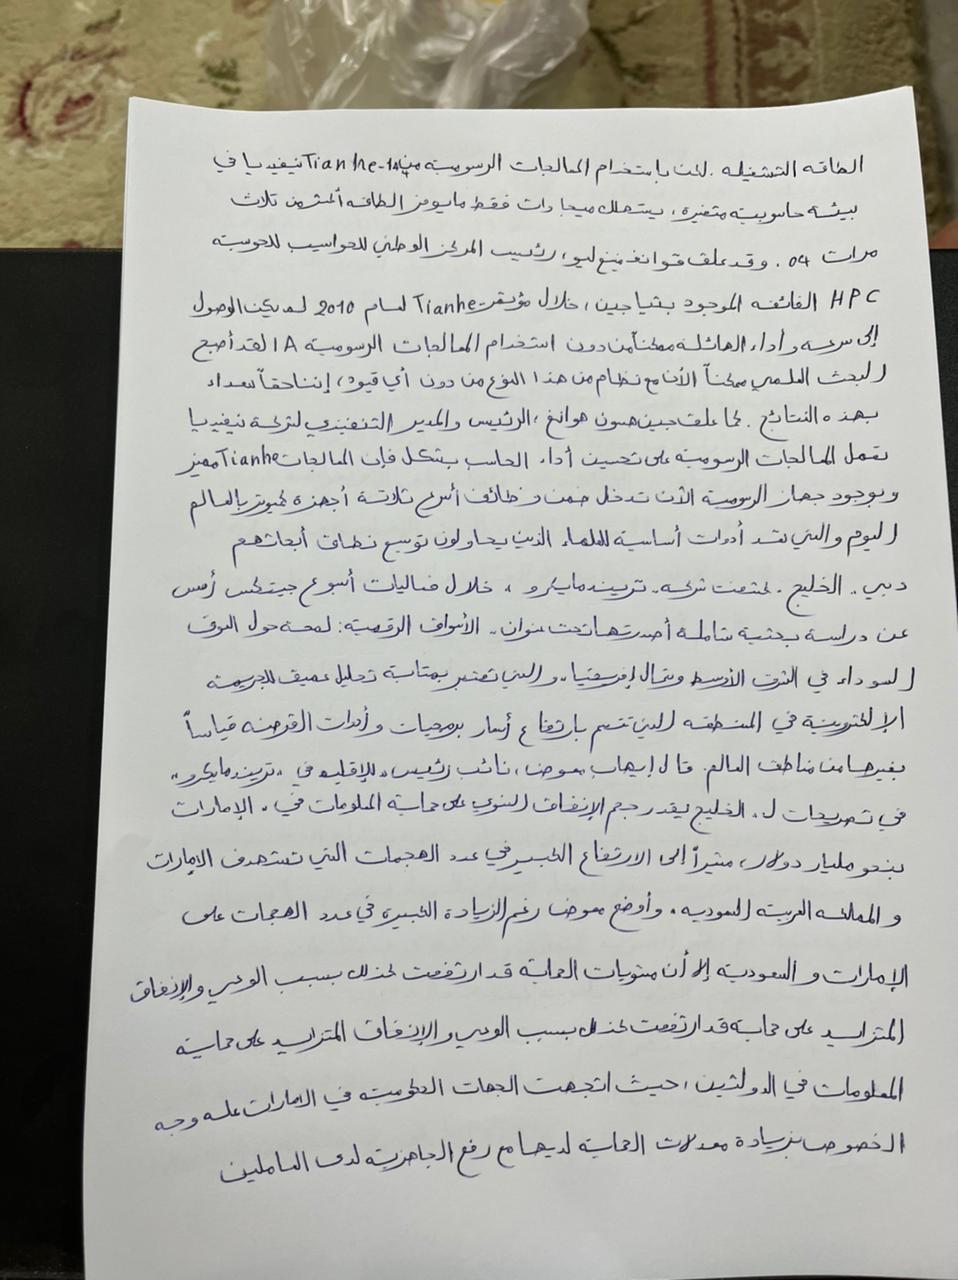 الطاقه التشغيله . لكن باستخدام المعالجات الرسوميه من Tianhe-1A نيفيديا في
بيئة حاسوبية متغيرة ، يستهلك ميجا وات فقط مايوفر الطاقه أكثر من ثلاث
مرات 04 . وقد علق قوانغ مينغ ليو ، رئيس المركز الوطني للحواسيب للحوسبة
HPC الفائقه الموجود بتياجين ، خلال مؤتمر Tianhe لعام 2010 لم يكن الوصول
إلى سرعه وأداء الهائلة ممكناً من دون استخدام المعالجات الرسومية 1A لقد أصبح
البحث العلمي ممكناً الأن مع نظام من هذا النوع من دون أي قيود ، إننا حقاً سعداء
بهذه النتائج . كما علق جين هسون هوانغ ، الرئيس والمدير التنفيذي لشركة نيفيديا
تعمل المعالجات الرسومية على تحسين أداء الحاسب بشكل فإن المعالجات Tianhe مميز
وبوجود جهاز الرسومية الأن تدخل ضمن وظائف أسرع ثلاثة أجهزة كمبوتر بالعالم
اليوم والتي تعد أدوات أساسية للعلماء الذين يحاولون توسيع نطاق أبحاثهم
دبي .. الخليج . كشفت شركه .. تريند مايكرو ، خلال فعاليات أسبوع جيتكس أمس
عن دراسة بحثية شاملة أصدرتها تحت عنوان .. الأسواق الرقمية : لمحة حول السوق
السوداء في الشرق الأوسط وشمال إفريقيا .. والتي تعتبر بمثابة تحليل عميق للجريمة
الإلكترونية في المنطقه التي تتسم بارتفاع أسعار برمجيات وأدوات القرصنه قياساً
بغيرها من مناطق العالم . قال إيهاب معوض ، نائب رئيس .. للإقليم في .. تريند مايكرو ..
في تصريحات ل .. الخليج يقدر حجم الإنفاق السنوي على حماية المعلومات في .. الإمارات
بنحو مليار دولار ، مشيراً إلى الارتفاع الكبير في عدد الهجمات التي تستهدف الإمارات
والمملكه العربية السعوديه . وأوضح معوض رغم الزيادة الكبيرة في عدد الهجمات على
الإمارات والسعودية إلا أن مستويات الحماية قد ارتفعت كذلك بسبب الوعي والإنفاق
المتزايد على حماية قد ارتفعت كذلك بسبب الوعي والإنفاق المتزايد على حماية
المعلومات في الدولتين ، حيث اتجهت الجهات الحكومية في الامارات على وجه
الخصوص بزيادة معدلات الحماية لديها مع رفع الجاهزية لدى العاملين